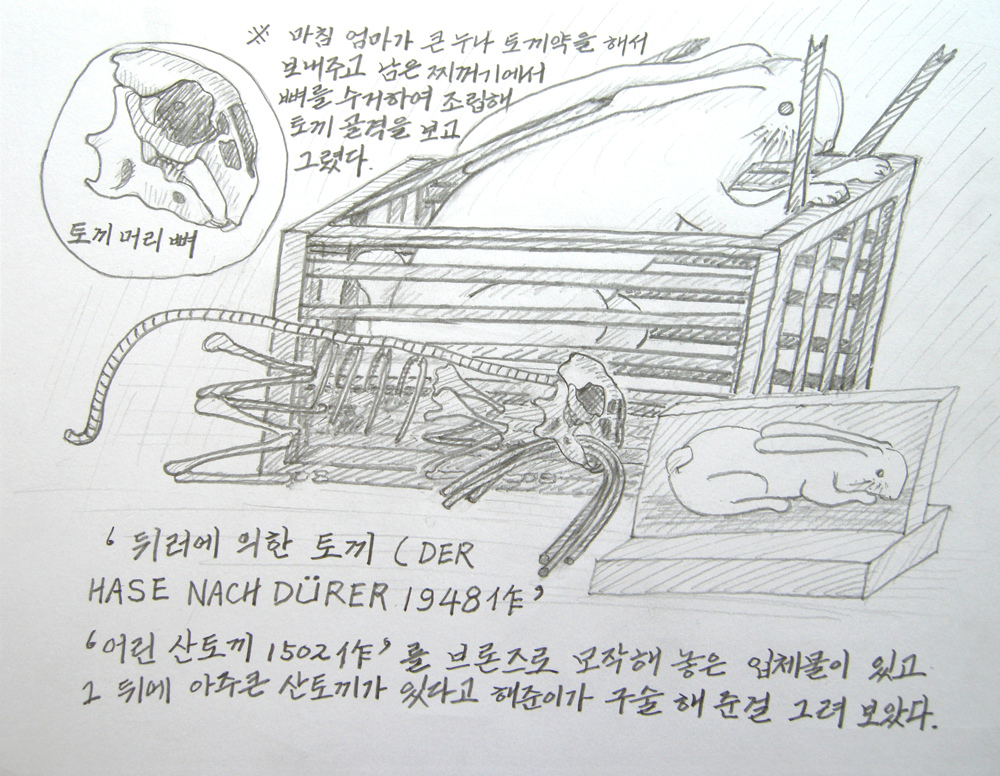 ※ 마침 엄마가 큰누나 토끼약을 해서
보내주고 남은 찌꺼기에서
뼈를 수거하여 조립해
토끼 골격을 보고
그렸다.
토끼 머리뼈
‘ 뒤러에 의한 토끼 ( DER
HASE NACH DÜRER 1948作’
‘어린 산토끼 1502作’ 를 브론즈로 모작해 놓은 입체물이 있고
그 뒤에 아주큰 산토끼가 있다고 해준이가 구술 해 준걸 그려 보았다.